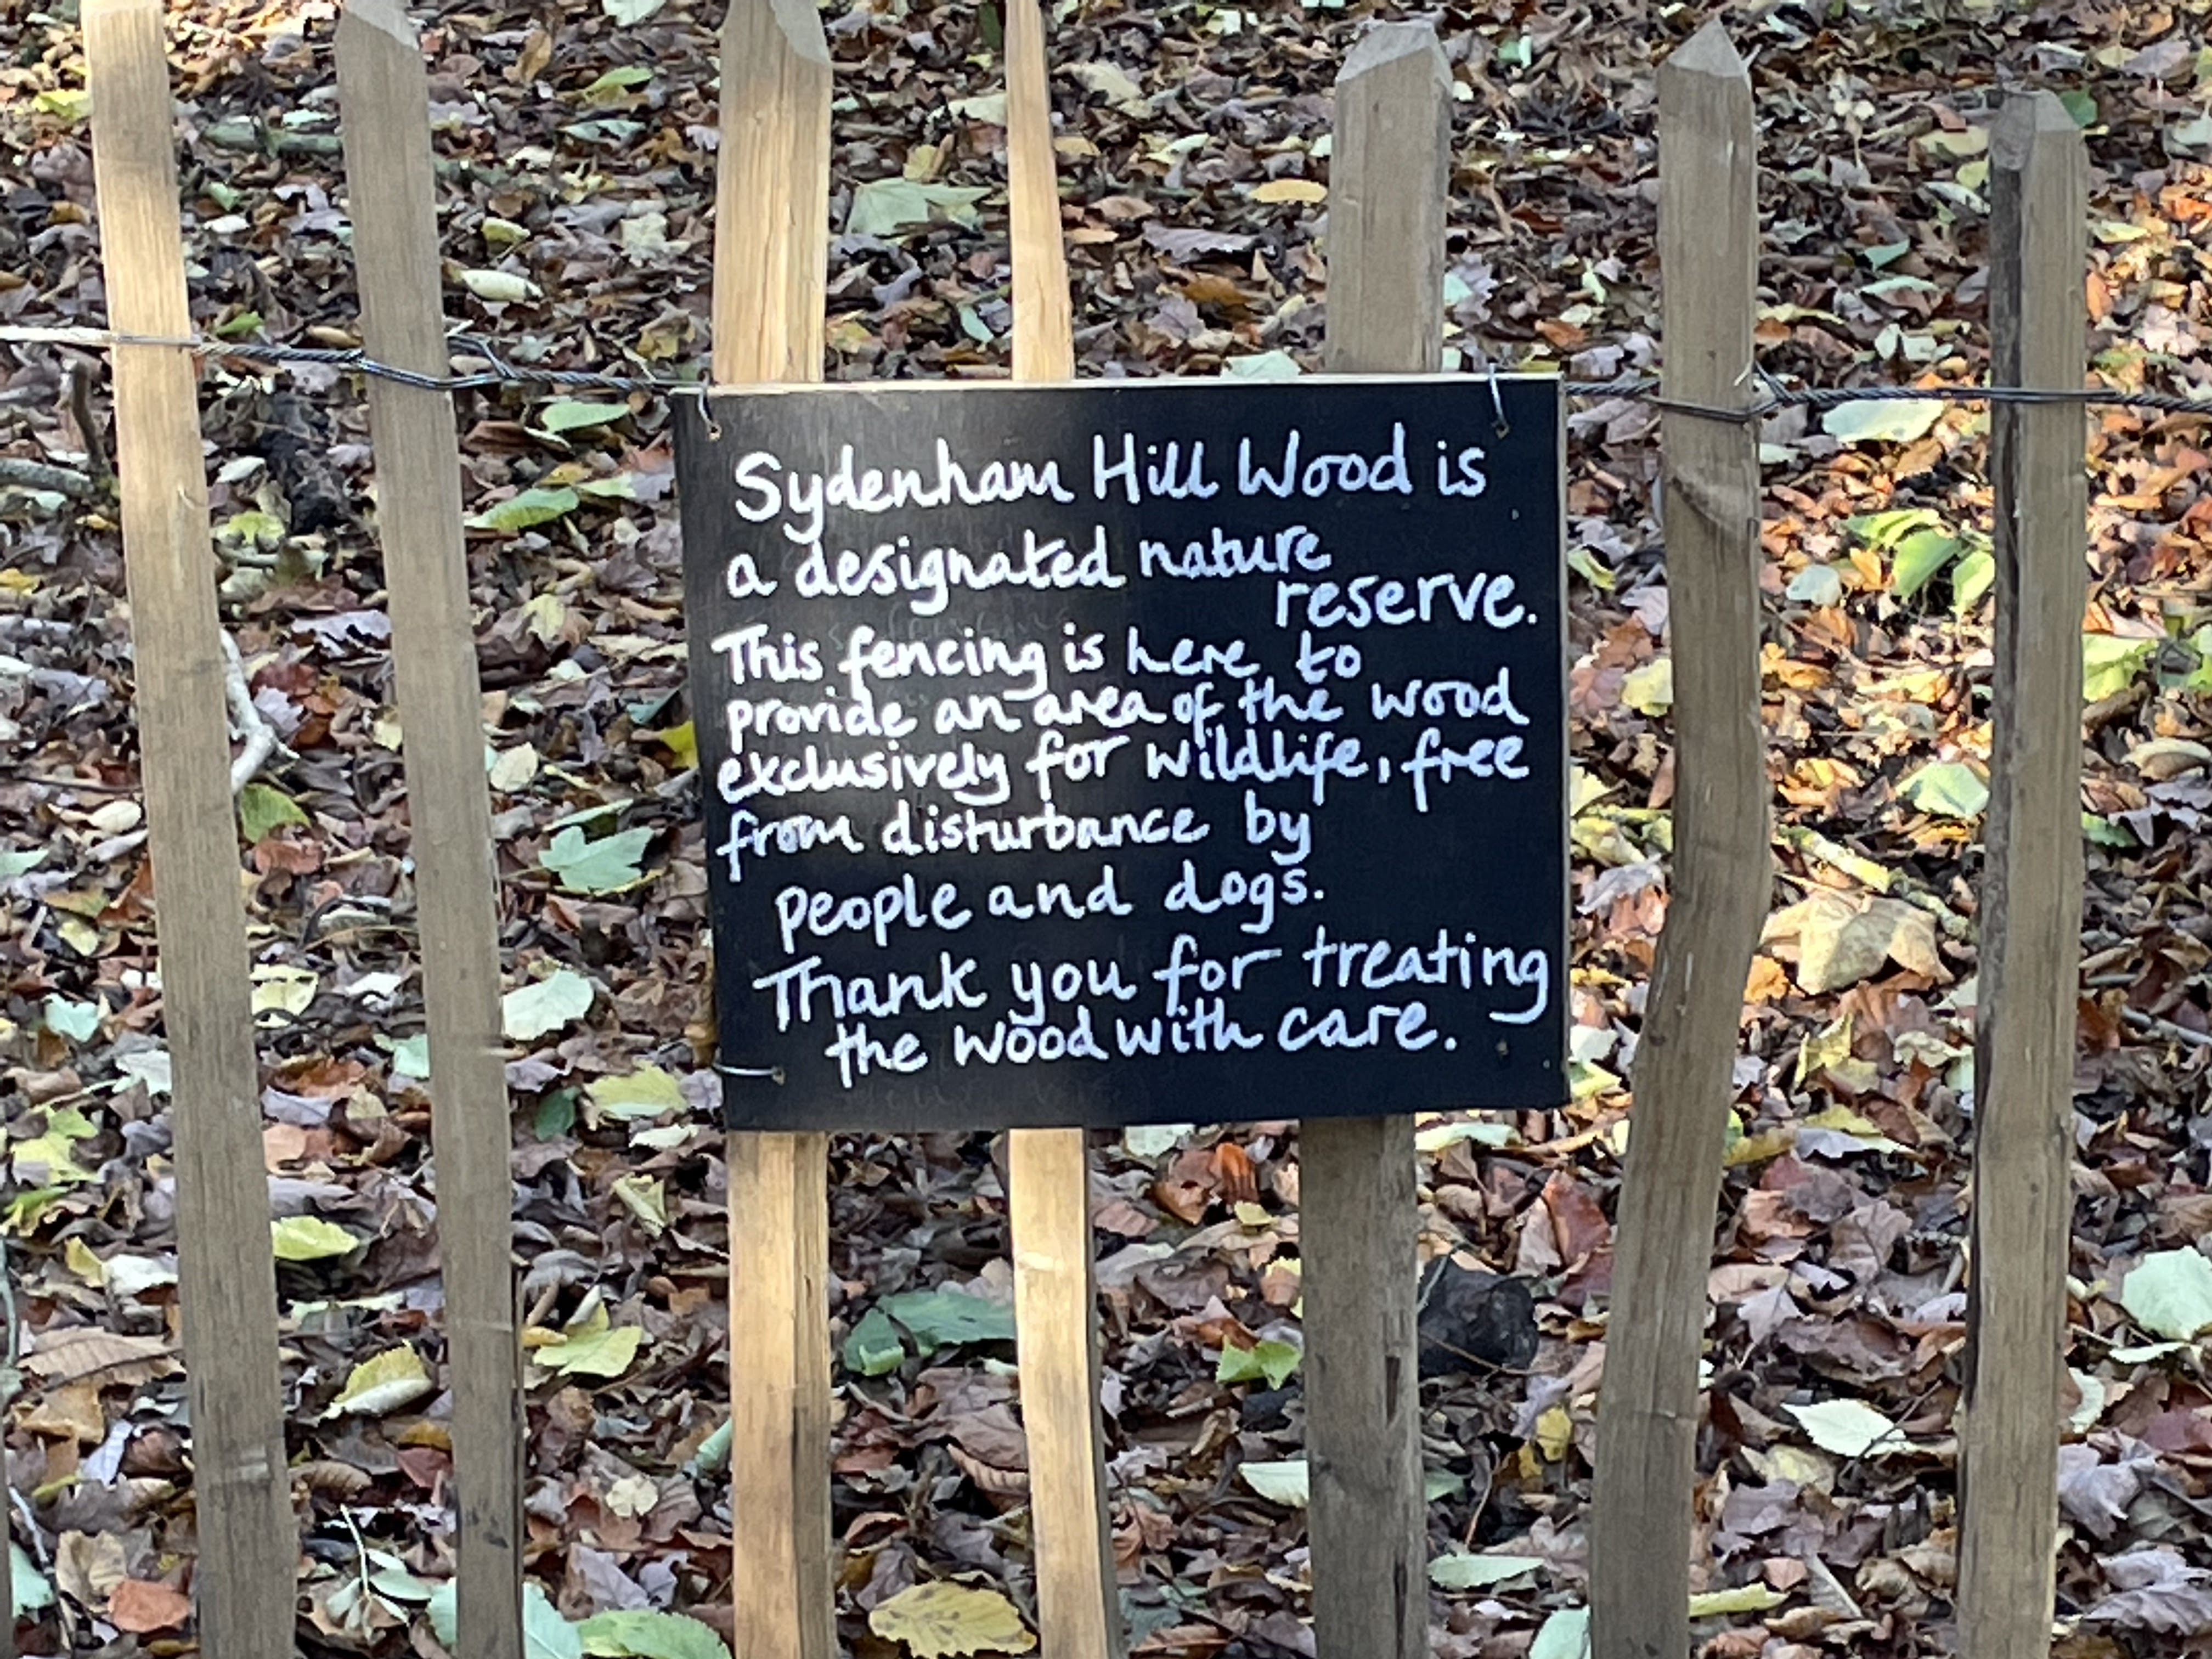 Sydenham Hill Wood is
a designated nature
reserve.
This fencing is here to
provide an area of the wood
exclusively for wildlife, free
from disturbance by
people and dogs.
Thank you for treating
the wood with care.